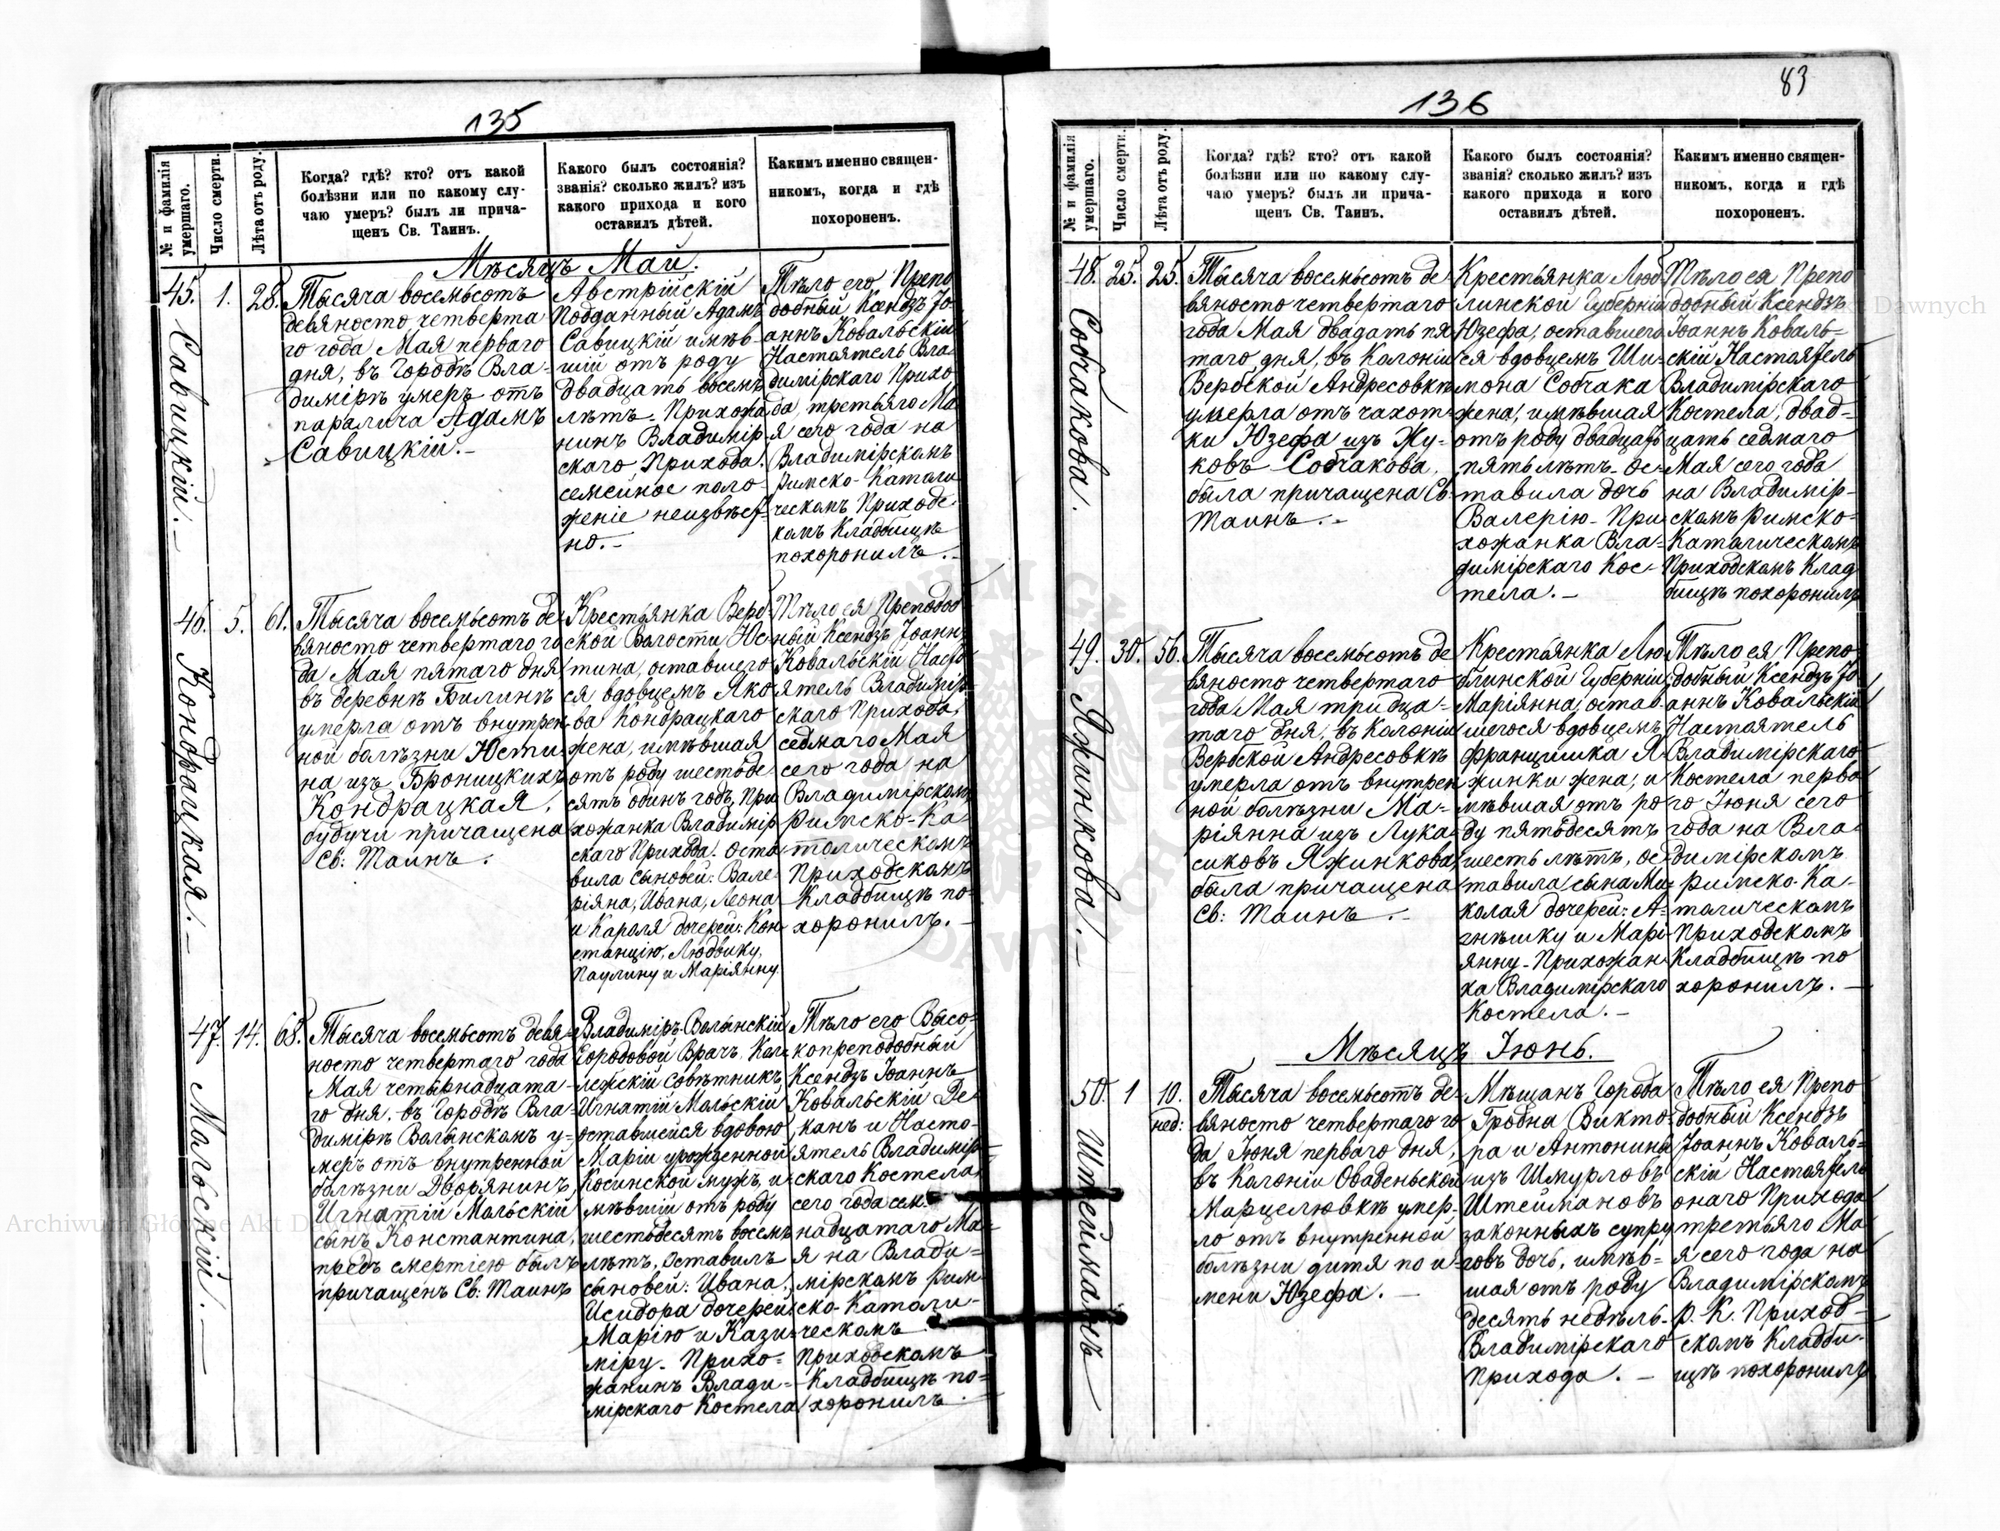 135
№ и фамилія умершаго.
Число смерти.
Лѣта отъ роду.
Когда? гдѣ? кто? отъ какой
болѣзни или по какому слу-
чаю умеръ? былъ ли прича-
щенъ Св. Таинъ.
Какого былъ состоянія?
званія? сколько жилъ? изъ
какого прихода и кого
оставилъ дѣтей.
Какимъ именно священ-
никомъ, когда и гдѣ
похороненъ.
Мѣсяцъ Май.
45. Савицкій.-
1.
28.
Тысяча восемьсотъ
девяносто четверта
го года Мая перваго
дня, въ Городѣ Вла-
димірѣ умеръ отъ
паралича Адамъ
Савицкій.-
Австрійскій
Подданный Адамъ
Савицкій имѣв-
шій отъ роду
двадцать восемь
лѣтъ. Прихожа
нинъ Владимір
скаго Прихода.
семейное поло-
женіе неизвѣст-
но.-
Тѣло его, Препо
добный Ксендзъ Іо
аннъ Ковальскій
Настоятель Вла
димірскаго Прихо-
да, третьяго Ма
я сего года на
Владимірскомъ
Римско-Католи
ческомъ Приходс
комъ Кладбищѣ
похоронилъ.-
46. Кондрацкая.-
5.
61.
Тысяча восемьсотъ де-
вяносто четвертаго го
да Мая пятаго дня
въ деревнѣ Билинѣ
умерла отъ внутрен
ной болѣзни Юсти
на изъ Броницкихъ
Кондрацкая,
будучи причащена
Св: Таинъ.
Крестьянка Верб-
ской Волости Юс
тина, оставшего
ся вдовцемъ Яко
ва Кондрацкаго
жена, имѣвшая
отъ роду шестьде
сятъ одинъ годъ, При
хожанка Владимір
скаго Прихода. Оста
вила сыновей: Вале-
ріяна, Ивана, Леона
и Кароля дочерей: Кон
станцію, Людвику,
Паулину и Маріянну
Тѣло ея Преподоб
ный Ксендзъ Іоаннъ
Ковальскій Насто
ятель Владимір-
скаго Прихода,
седьмаго Мая
сего года на
Владимірскомъ
Римско-Ка-
толическомъ
Приходскомъ
Кладбищѣ по-
хоронилъ.-
47. Мольскій.-
14.
68.
Тысяча восемьсотъ девя-
носто четвертаго года
Мая четырнадцата-
го дня, въ Городѣ Вла-
димірѣ Волынскомъ у-
меръ отъ внутренной
болѣзни Дворянинъ,
Игнатій Мольскій
сынъ Константина,
предъ смертію былъ
причащенъ Св: Таинъ
Владиміръ-Волынскій
Городовой Врачъ, Кол-
лежскій Совѣтникъ,
Игнатій Мольскій
оставшейся вдовою
Маріи урожденной
Косинской мужъ, и-
мѣвшій отъ роду
шестьдесятъ восемь
лѣтъ, оставилъ
сыновей: Ивана,
Исидора дочерей
Марію и Кази-
міру. Прихо-
жанинъ Влади-
мірскаго Костела
Тѣло его Высо-
копреподобный
Ксендзъ Іоаннъ
Ковальскій Де-
канъ и Насто-
ятель Владимір-
скаго Костела
сего года сем-
надцатаго Ма-
я на Влади-
мірскомъ Рим-
ско-Католи-
ческомъ
Приходскомъ
Кладбищѣ по-
хоронилъ.
83
136
№ и фамилія умершаго.
Число смерти.
Лѣта отъ роду.
Когда? гдѣ? кто? отъ какой
болѣзни или по какому слу-
чаю умеръ? былъ ли прича-
щенъ Св. Таинъ.
Какого былъ состоянія?
званія? сколько жилъ? изъ
какого прихода и кого
оставилъ дѣтей.
Какимъ именно священ-
никомъ, когда и гдѣ
похороненъ.
48. Собчакова.
25.
25.
Тысяча восемьсотъ де
вяносто четвертаго
года Мая двадцать пя
таго дня, въ Колоніи
Вербской Андресовкѣ
умерла отъ чахот-
ки Юзефа изъ Жу-
ковъ Собчакова.
была причащена Св:
Таинъ.-
Крестьянка Люб
линской Губерніи
Юзефа, оставшего
ся вдовцемъ Ши-
мона Собчака
жена, имѣвшая
отъ роду двадцать
пять лѣтъ- ос-
тавила дочь
Валерію- При
хожанка Вла-
димірскаго Кос-
тела.-
Тѣло ея, Препо
добный Ксендзъ
Іоаннъ Коваль-
скій Настоятель
Владимірскаго
Костела, двад-
цать седьмаго
Мая сего года
на Владимір-
скомъ Римско-
Католическомъ
Приходскомъ Клад
бищѣ похоронилъ
49. Яжинкова.-
30.
56.
Тысяча восемьсотъ де
вяносто четвертаго
года Мая тридца-
таго дня, въ Колоніи
Вербской Андресовкѣ
умерла отъ внутрен
ной болѣзни Ма-
ріянна изъ Лука
сиковъ Яжинкова
была причащена
Св: Таинъ.-
Крестьянка Лю
блинской Губерніи
Маріянна, остав
шегося вдовцемъ
Францишка Я
жинки жена, и
мѣвшая отъ ро
ду пятьдесятъ
шесть лѣтъ, ос
тавила сына Ми
колая дочерей: А-
гнѣшку и Марі-
янну- Прихожан
ка Владимірскаго
Костела.-
Тѣло ея, Препо
добный Ксендзъ Іо
аннъ Ковальскій
Настоятель
Владимірскаго
Костела перва
го Іюня сего
года на Вла
димірскомъ
Римско-Ка-
толическомъ
Приходскомъ
Кладбищѣ по
хоронилъ.-
Мѣсяцъ Іюнь.
50. Штейманъ
1
10.
нед:
Тысяча восемьсотъ де-
вяносто четвертаго го
да Іюня перваго дня,
въ Колоніи Оваденьской
Марцелювкѣ умер-
ло отъ внутренной
болѣзни дитя по и-
мени Юзефа.-
Мѣщанъ Города
Гродна, Викто-
ра и Антонины
изъ Шмурловъ
Штеймановъ
законныхъ супру
говъ дочь, имѣв-
шая отъ роду
десять недѣль-
Владимірскаго
Прихода.-
Тѣло ея Препо
добный Ксендзъ
Іоаннъ Коваль-
скій Настоятель
онаго Прихода
третьяго Ма-
я сего года на
Владимірскомъ
Р. К. Приход-
скомъ Кладби-
щѣ похоронилъ
Archiwum Główne Akt Dawnych